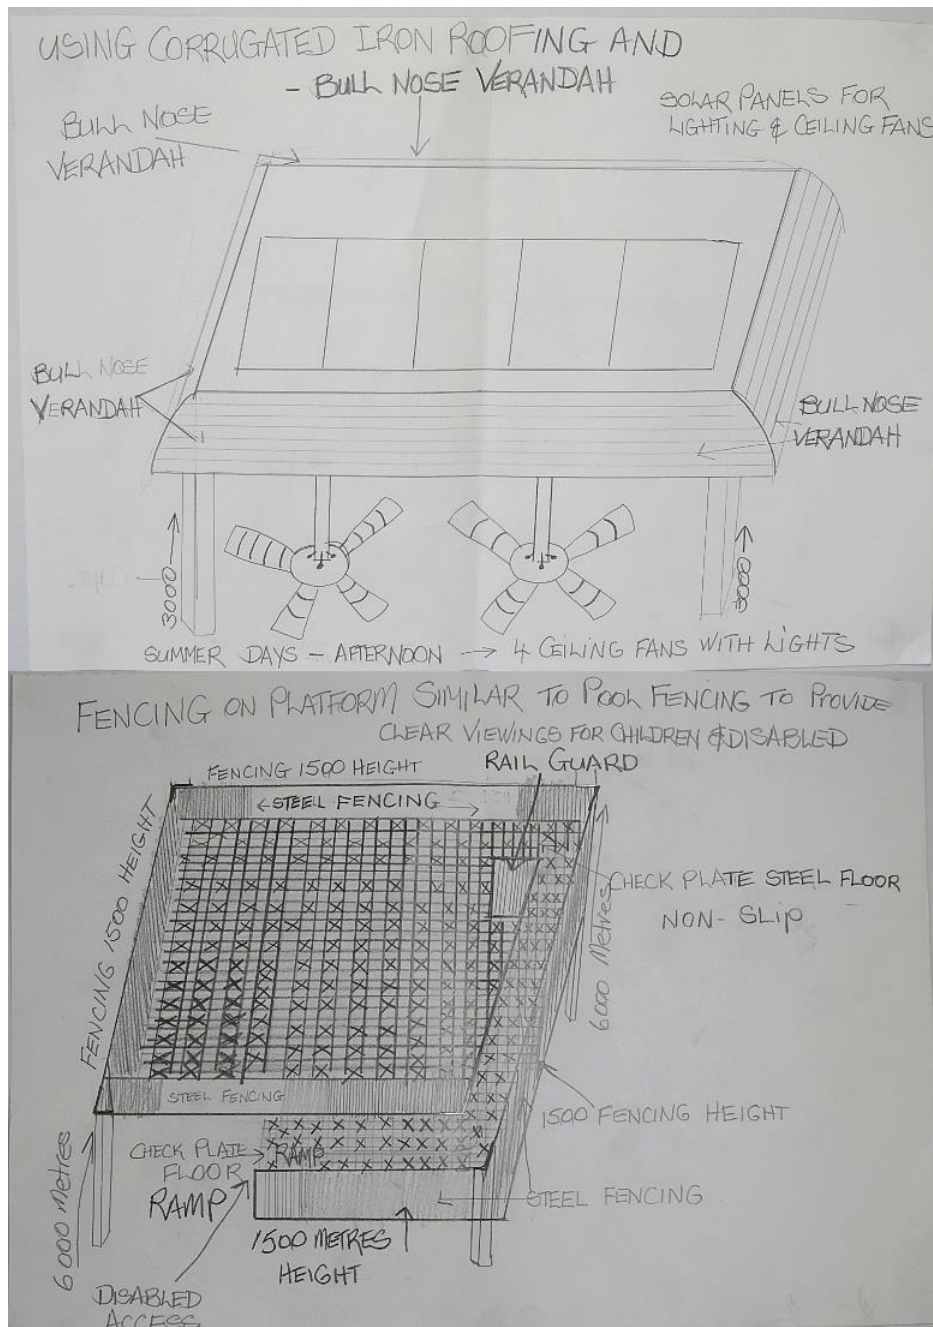 USING CORRUGATED IRON ROOFING AND
- BULL NOSE VERANDAH
SOLAR PANELS FOR
LIGHTING & CEILING FANS
BULL NOSE
VERANDAH
BULL NOSE
VERANDAH
BULL NOSE
VERANDAH
3000
3000
SUMMER DAYS - AFTERNOON → 4 CEILING FANS WITH LIGHTS
FENCING ON PLATFORM SIMILAR TO POOL FENCING TO PROVIDE
CLEAR VIEWINGS FOR CHILDREN & DISABLED
RAIL GUARD
FENCING 1500 HEIGHT
←STEEL FENCING→
FENCING 1500 HEIGHT
CHECK PLATE STEEL FLOOR
NON-SLIP
6000 Metres
STEEL FENCING
1500 FENCING HEIGHT
CHECK PLATE
FLOOR
RAMP
RAMP
STEEL FENCING
6000 Metres
1500 METRES
HEIGHT
DISABLED
ACCESS